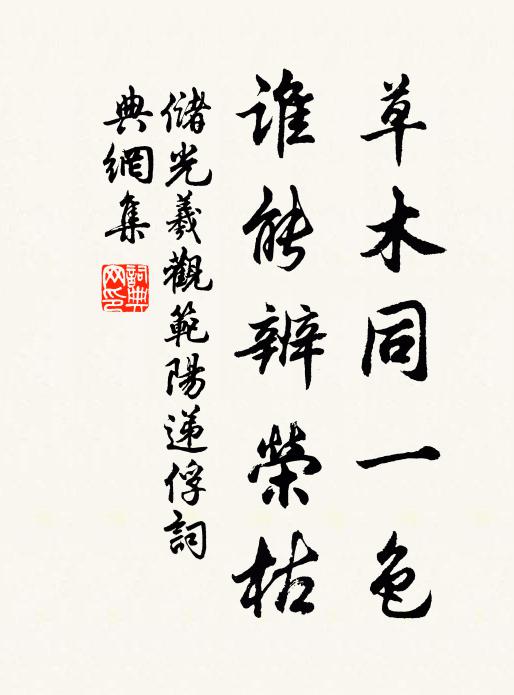 草木同一色
谁能辨榮枯
儲光羲觀範陽递俘詞
典網集
詞典网印